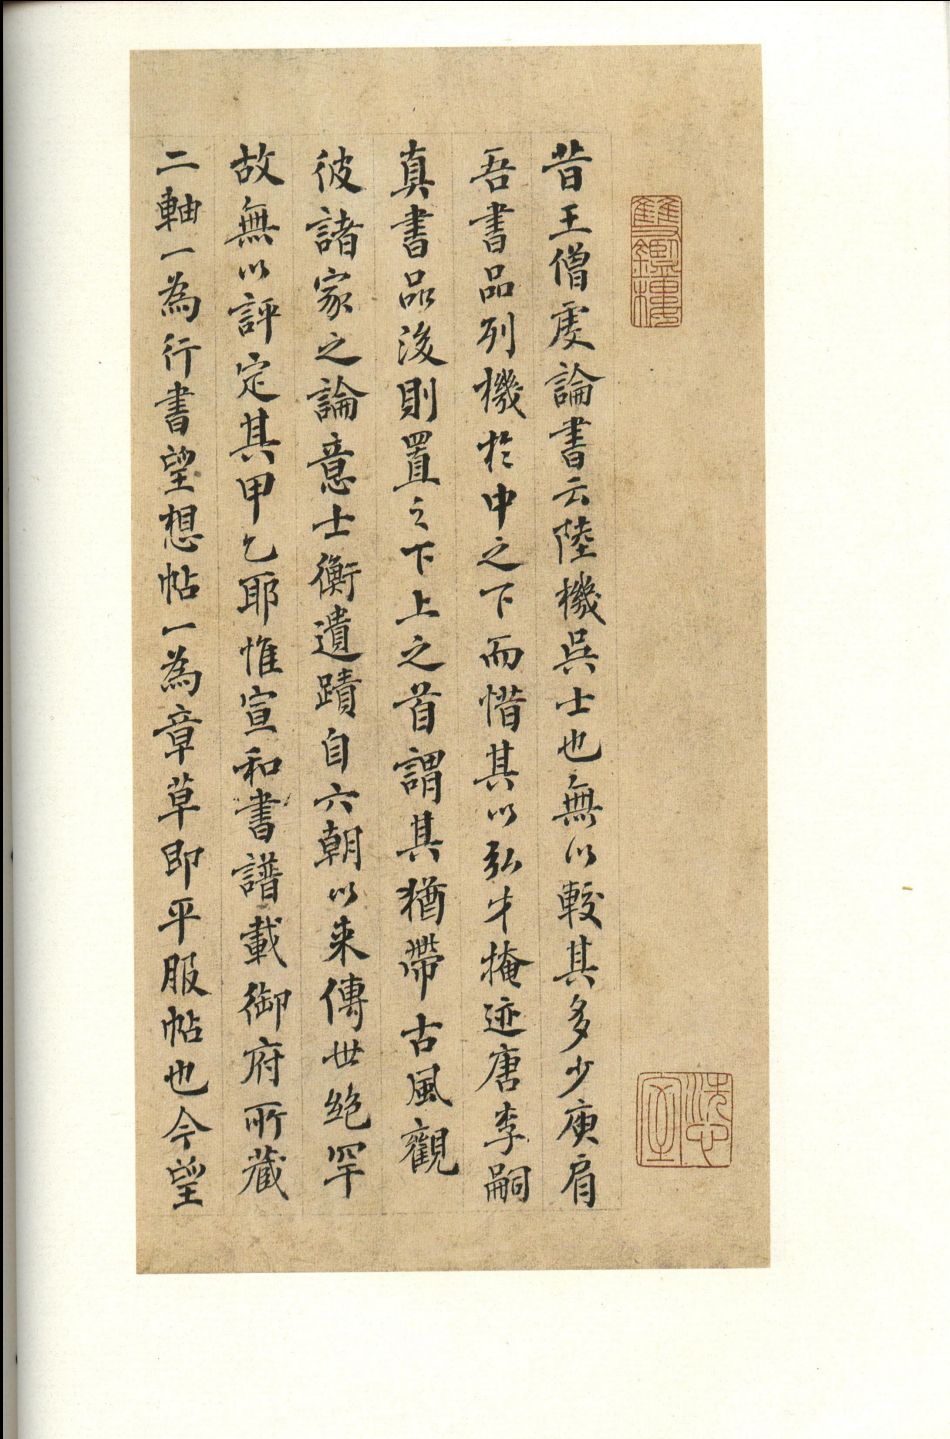 昔王僧虔論書云陸機吳士也無以較其多少庾肩
吾書品列機於中之下而惜其以弘才掩迹唐李嗣
真書品後則置之下上之首謂其猶帶古風觀
彼諸家之論意士衡遺蹟自六朝以来傳世絶罕
故無以評定其甲乙耶惟宣和書譜載御府所藏
二軸一為行書望想帖一為章草即平服帖也今望
雙鑑樓
洗心室